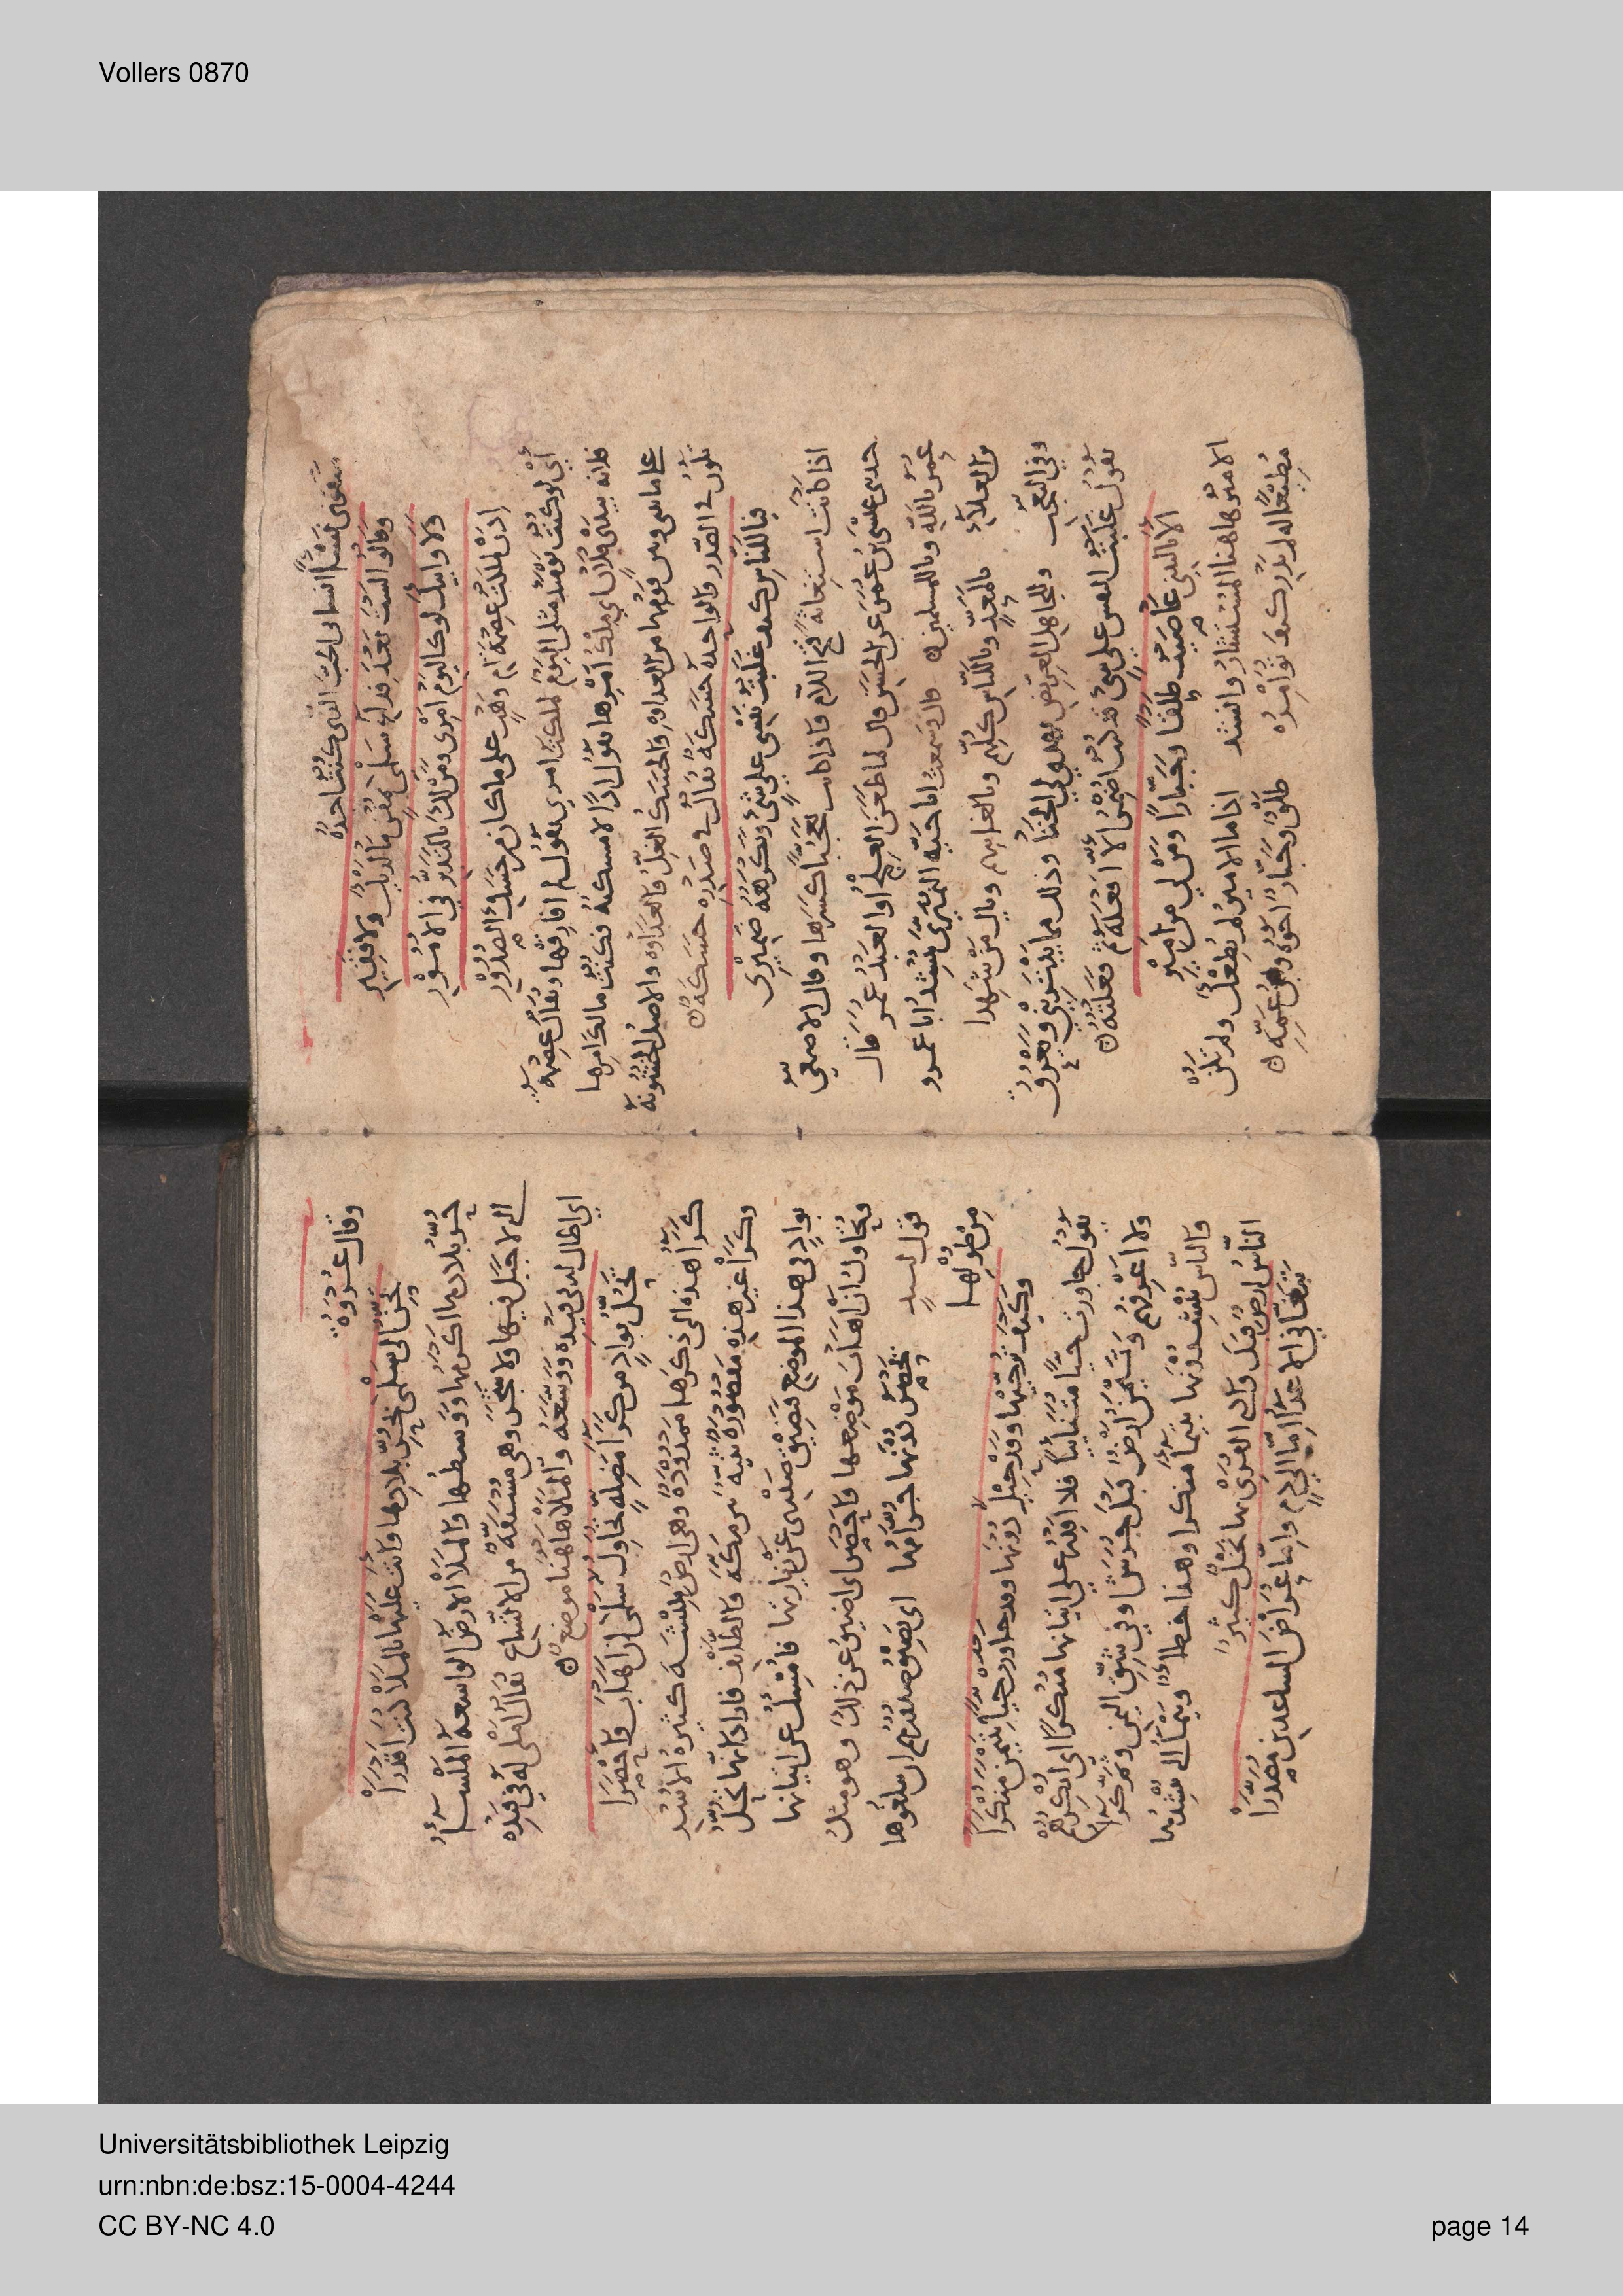 سقوني نسئًا انساني الحب الذي كنت اجده
وقالوا لست بعد فداء سلمى بمغن ما لديك ولا فقير
ولا وابيك لو كاليوم امري ومن لك بالتدبر في الامور
اذن لملكت عصمة ام وهب على ما كان من حسك الصدور
أي لو كنت يومئذ مثلي اليوم لملكت امري يقول لم افارقها ويقال عصمة
فلانة بيدي فلان اي يملك امرها يقول اذا لامسكها فكنت مالكا امرها
على ما بيني وبين قومها من العداوة والحسك الغل والعداوة والاصل الخشونة
تكون في الصدر والواحدة حسكة يقال في صدره حسكة
فيا للناس كيف غلبت نفسي على شيء ويكرهه ضميري
اذا كانت استغاثة فتح اللام فاذا كانت تعجبا كسرها وقال الاصمعي
حدثني عيسى بن عمر عن الحسن قال لما طعن العلج او العبد عمر قال
عمر يا لله ويا للمسلمين قال وسمعت ابا حية النميري ينشد ابا عمرو
بن العلاء يا لمعد ويا للناس كلهم ويا لغايبهم ويا لمن شهدا
وفي التعجب ولجاهل العريض يهدي لي الخنا وذلك مما يبتريني ويعرق
يقول غلبت النفس على شيء قد كنت اضمر الا افعله ثم فعلته
الا يا ليتني عاصيت طلقا وجبارا ومن لي من امير
الامير هاهنا المستشار وانشد اذا ما الامير لم يطعك ولم تلق
مطيعا له لم يدر كيف توامره طلق وجبار اخوه وابن عمه
وقال عروة
تحن الى سلمى بحر بلادها وانت عليها بالملا كنت اقدرا
حر بلادها اكرمها ووسطها والملا الارض الواسعة الملساء
التي لا جبل فيها ولا شجر وهي مستقة من الاتساع يقال املى له في قيده
اي اطال له في قيده ووسعه والملا هاهنا موضع
تحل بواد من كراء مضلة تحاول سلمى ان اهاب واحصرا
كراء هذه التي ذكرها ممدودة وهي ارض ببيشة كثيرة الاسد
وكرا غير هذه مقصورة ثنية بين مكة والطائف فاراد انها تحل
بوادي هذا الموضع فيضيق صدري عن اتيانها فامسك عن اتيانها
وتحاول ان اهاب موضعها فاحصر اي اضيق عن ذلك وهو مثل
قول لبيد يحصر دونها جرامها اي تضيق صدورهم ان يبلغوها
من طولها
وكيف ترجيها وقد حيل دونها وقد جاورت حيا بتيمن منكرا
يقول جاورت حيا متنائيا فلا اقدر على اتيانها منكرا اي انكرهم
ولا اعرفهم وتيمن ارض قبل جرش وفي شق اليمن ثم كراء
والناس ينشدونها بتيماء منكرا وهذا خطا وتيماء التي ينشدها
الناس ارض قبل وادي القرى بها نخل كثير
تبغاني الاعداء اما الى دم واما عراض الساعدين مصدرا
Vollers 0870
Universitätsbibliothek Leipzig
urn:nbn:de:bsz:15-0004-4244
CC BY-NC 4.0
page 14